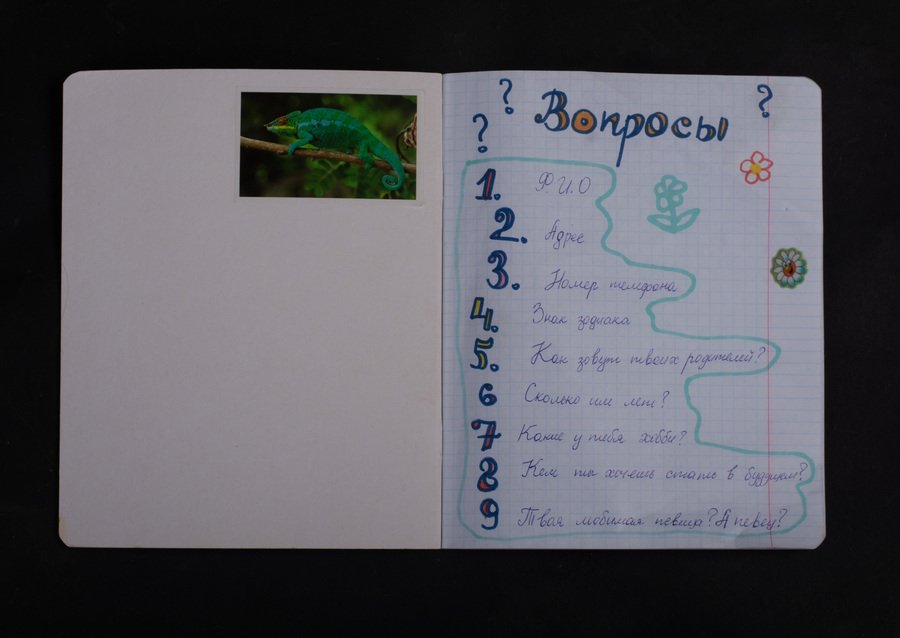 ? ? ?
Вопросы
1. Ф.И.О
2. Адрес
3. Номер телефона
4. Знак зодиака
5. Как зовут твоих родителей?
6 Сколько им лет?
7 Какие у тебя хобби?
8 Кем ты хочешь стать в будущем?
9 Твоя любимая певица? А певец?